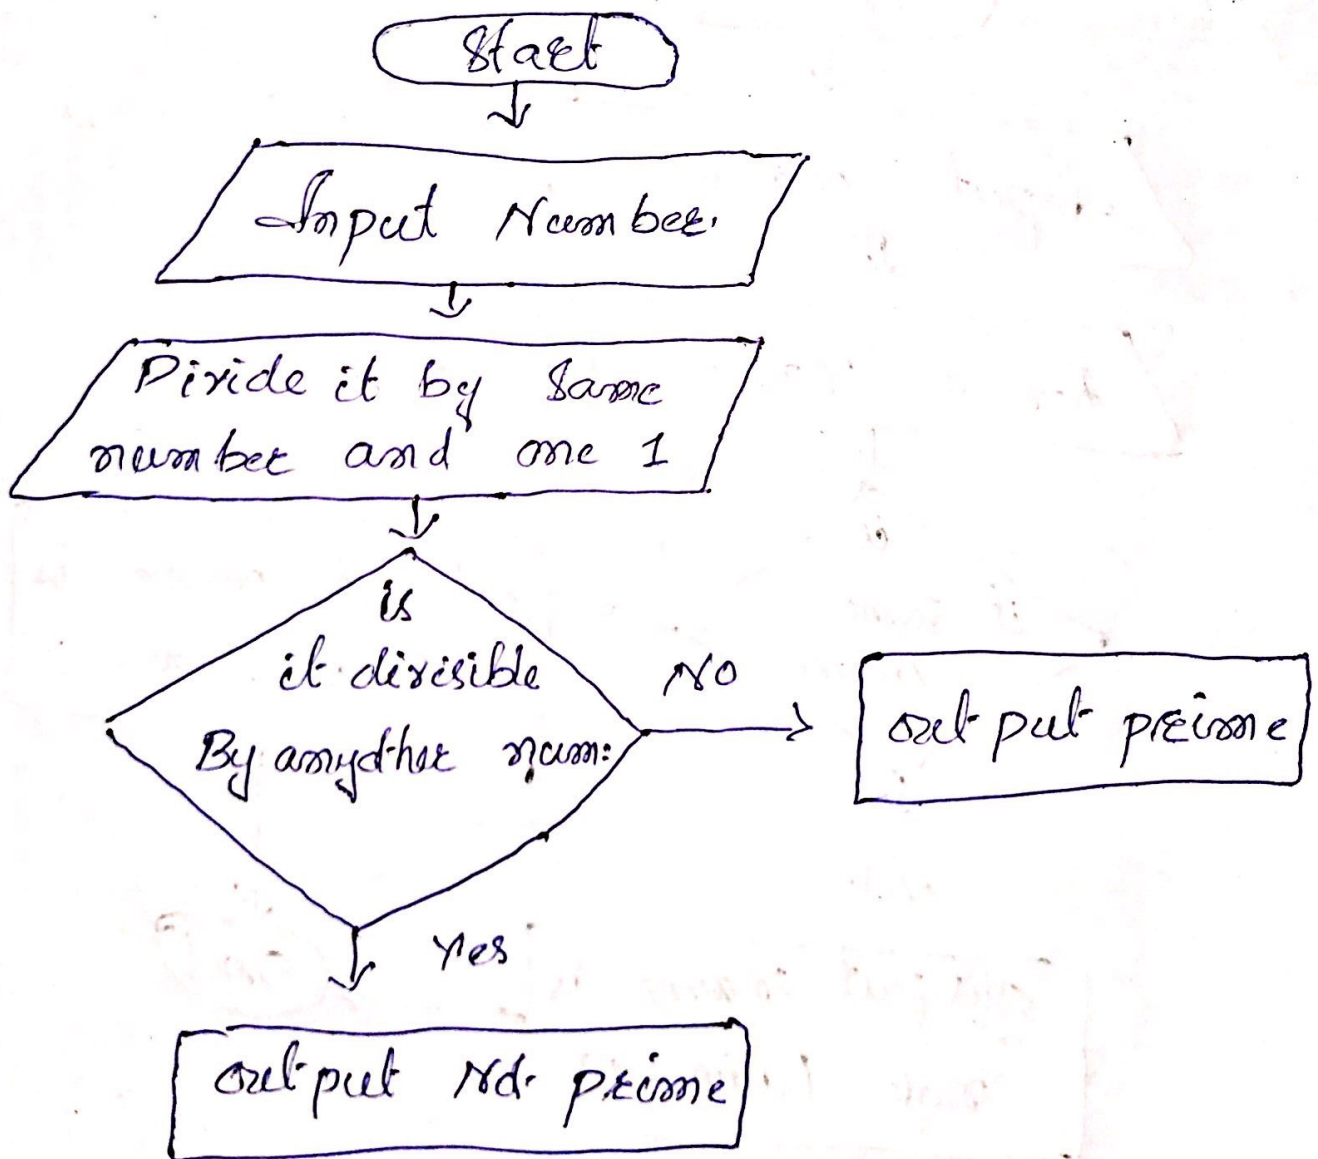 Start
Input Number.
Divide it by same
number and one 1
is
it divisible
By anyother num:
NO
output prime
Yes
output Not prime